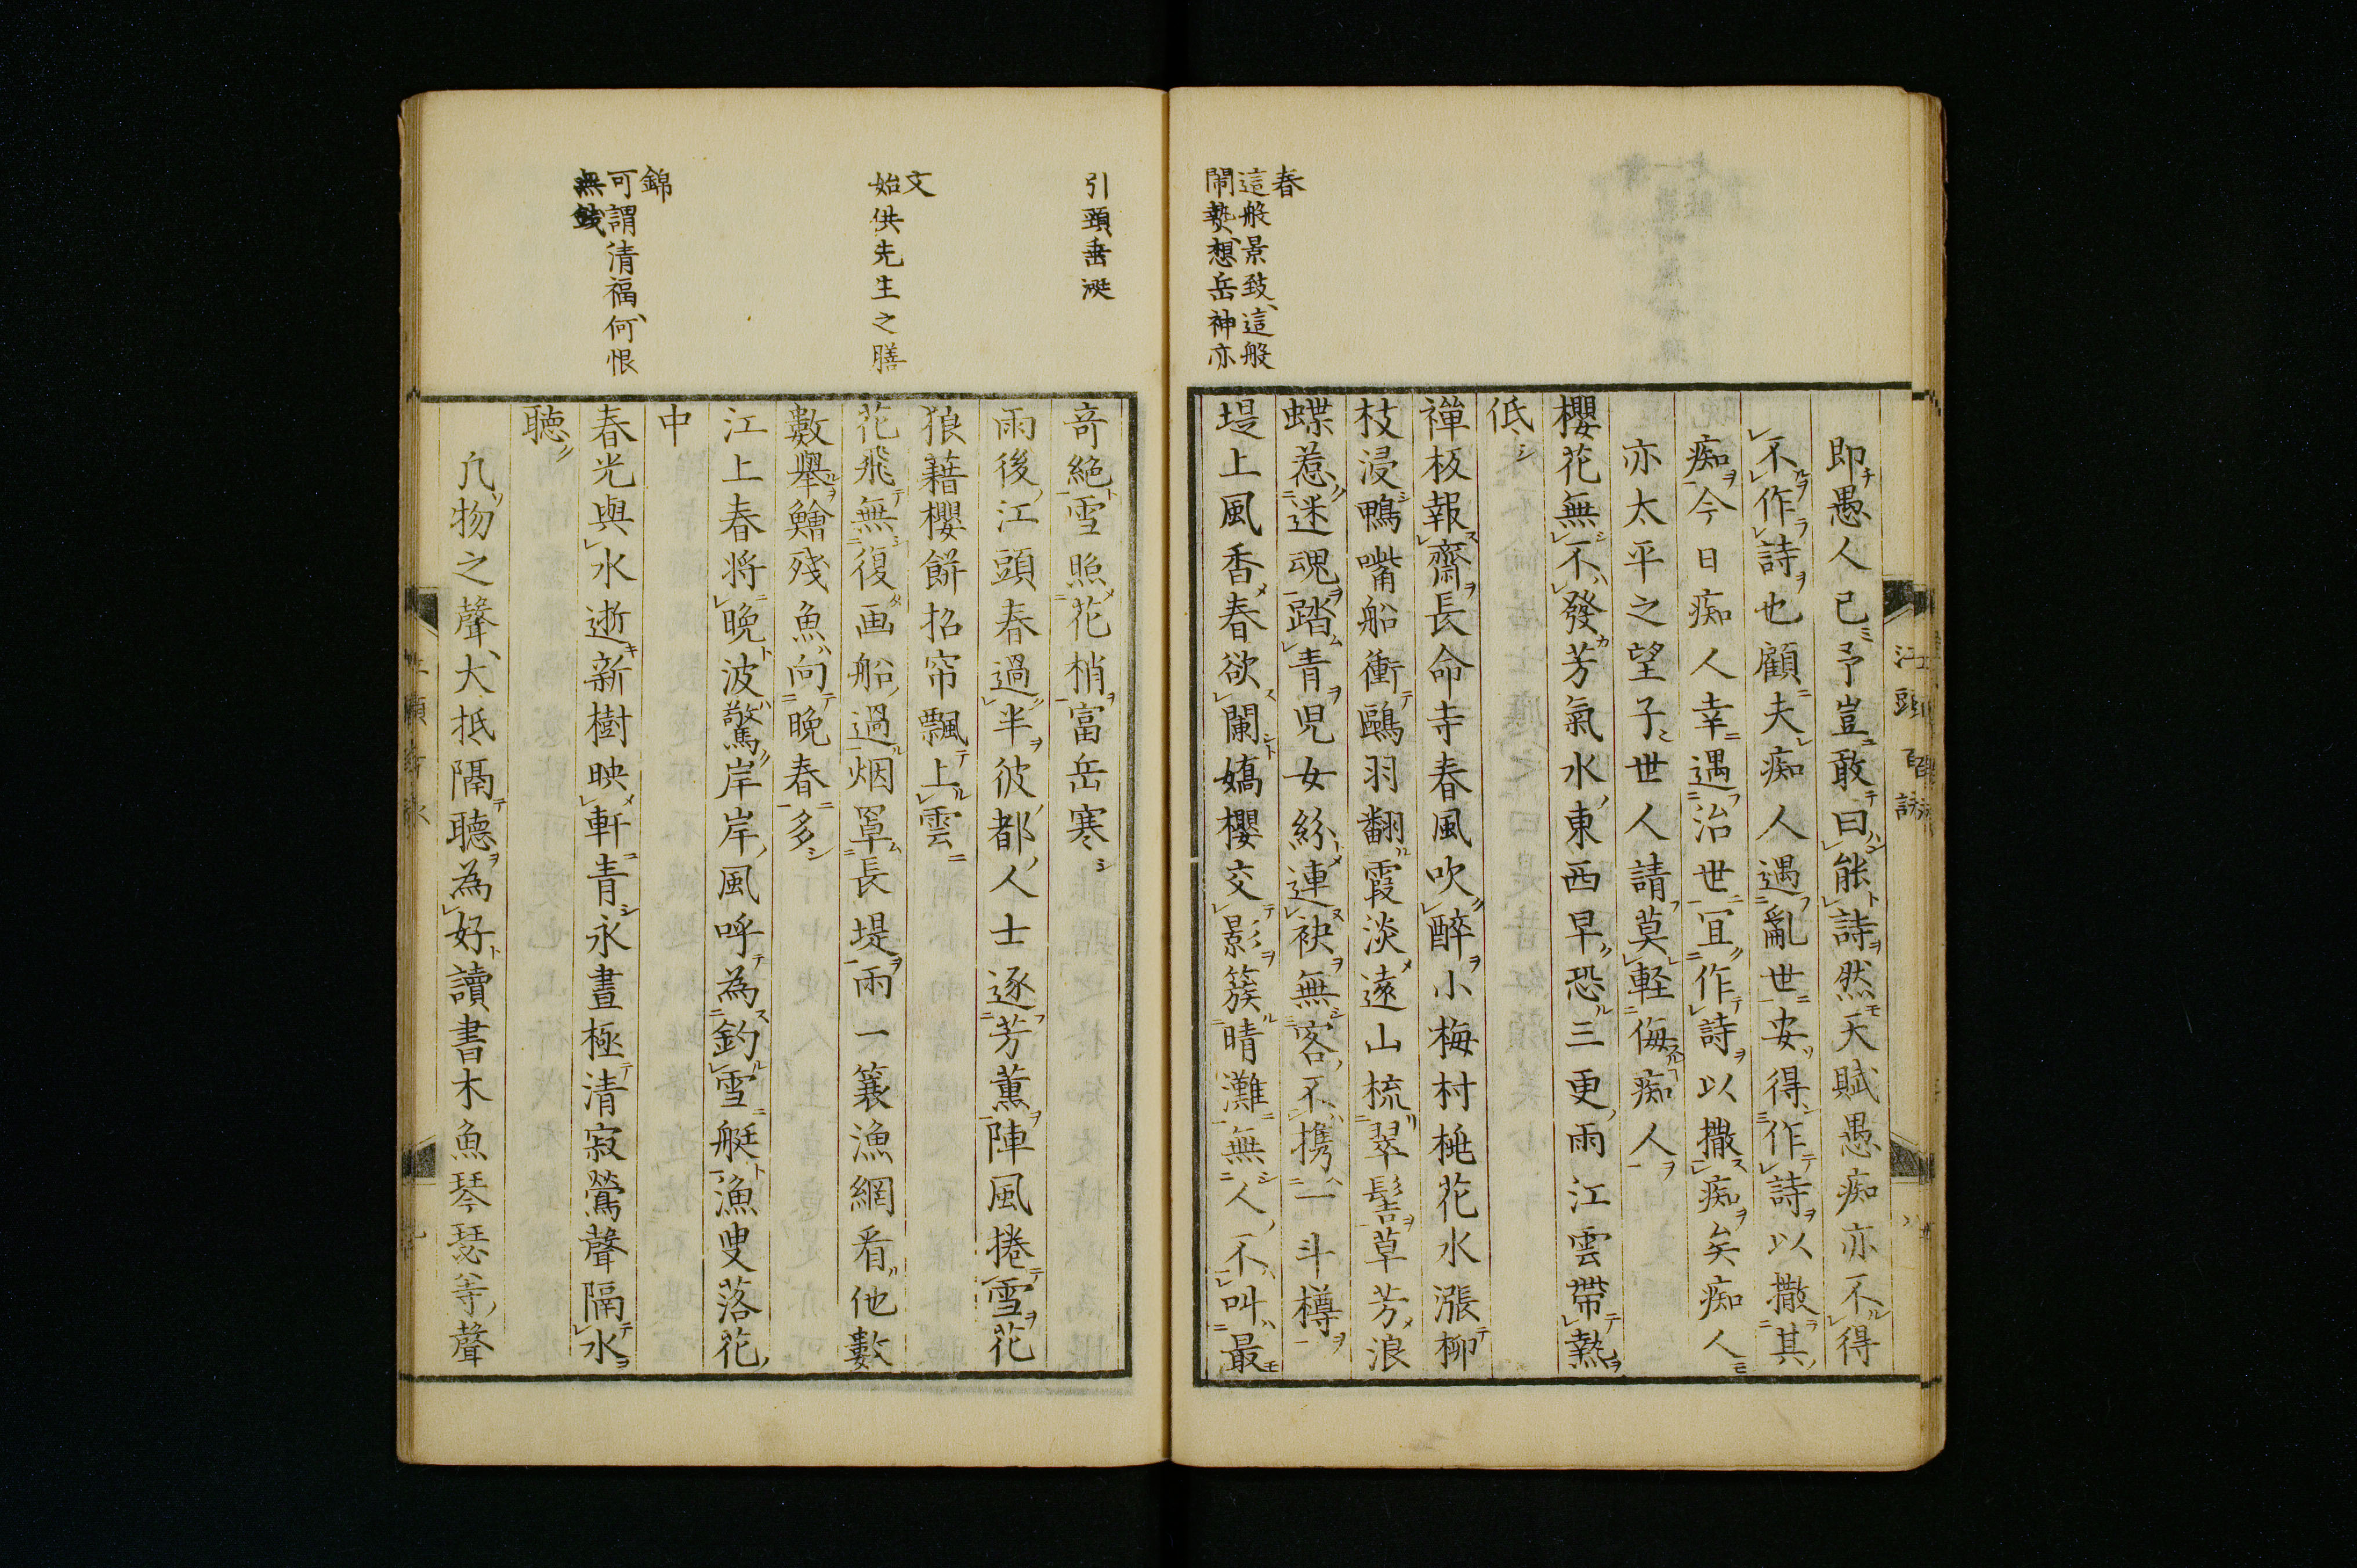 春
這般景致、這般
鬧熱、想岳神亦
江頭百詠
即愚人已予豈敢曰能詩然天賦愚痴亦不得
不作詩也顧夫痴人遇亂世安得作詩以撒其
痴今日痴人幸遇治世宜作詩以撒痴矣痴人
亦太平之望子世人請莫輕侮痴人
櫻花無不發芳氣水東西早恐三更雨江雲帶熱
低
禪板報齋長命寺春風吹醉小梅村桃花水漲柳
枝浸鴨嘴船衝鷗羽翻霞淡遠山梳翠髻草芳浪
蝶惹迷魂踏青児女紛連袂無客不携一斗樽
堤上風香春欲闌嬌櫻交影簇晴灘無人不叫最
引頸垂涎
文
始供先生之膳
錦
可謂清福、何恨
無錢
奇絕雪照花梢富岳寒
雨後江頭春過半彼都人士逐芳薰陣風捲雪花
狼藉櫻餅招帘飄上雲
花飛無復画船過烟罩長堤雨一簑漁網看他數
數舉鱠殘魚向晚春多
江上春将晩波驚岸岸風呼為釣雪艇漁叟落花
中
春光與水逝新樹映軒青永晝極清寂鶯聲隔水
聴
凢物之聲、大抵隔聴為好讀書木魚琴瑟等聲